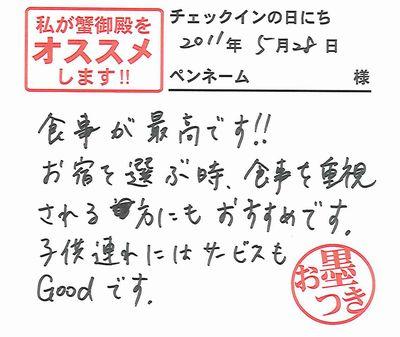 私が蟹御殿を
オススメ
します!!
チェックインの日にち
2011年 5月28日
ペンネーム 様
食事が最高です!!
お宿を選ぶ時、食事を重視
される方にもおすすめです。
子供連れにはサービスも
Goodです。
お墨つき